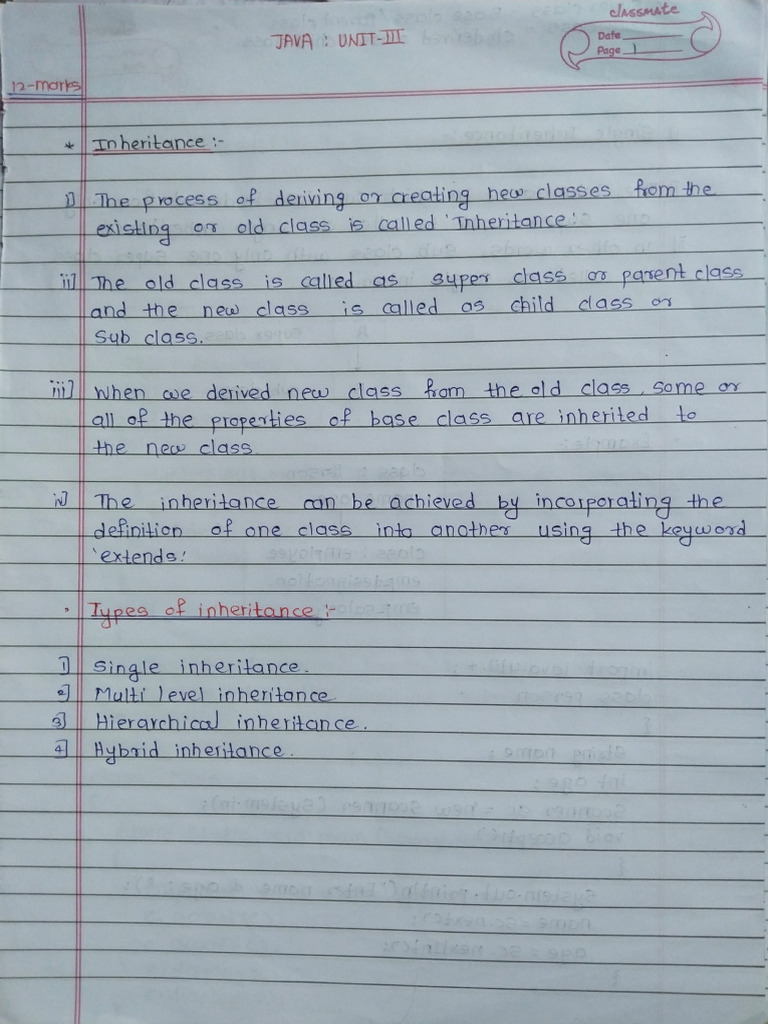 classmate
JAVA : UNIT-III
Date
Page 1
12-marks
* Inheritance :-
i] The process of deriving or creating new classes from the
existing or old class is called 'Inheritance'.
ii] The old class is called as super class or parent class
and the new class is called as child class or
sub class.
iii] When we derived new class from the old class, some or
all of the properties of base class are inherited to
the new class.
iv] The inheritance can be achieved by incorporating the
definition of one class into another using the keyword
'extends'.
• Types of inheritance :-
1] Single inheritance.
2] Multi level inheritance
3] Hierarchical inheritance.
4] Hybrid inheritance.